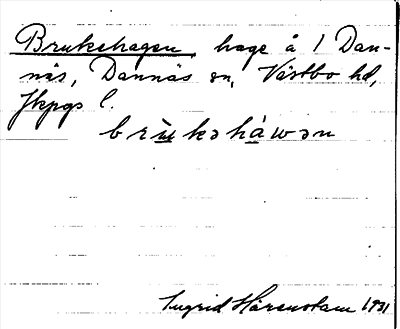 Brukehagen, hage å 1 Dan-
näs, Dannäs sn, Västbo hd,
Jkpgs l.
brùkəháwən
Ingrid Härenstam 1931